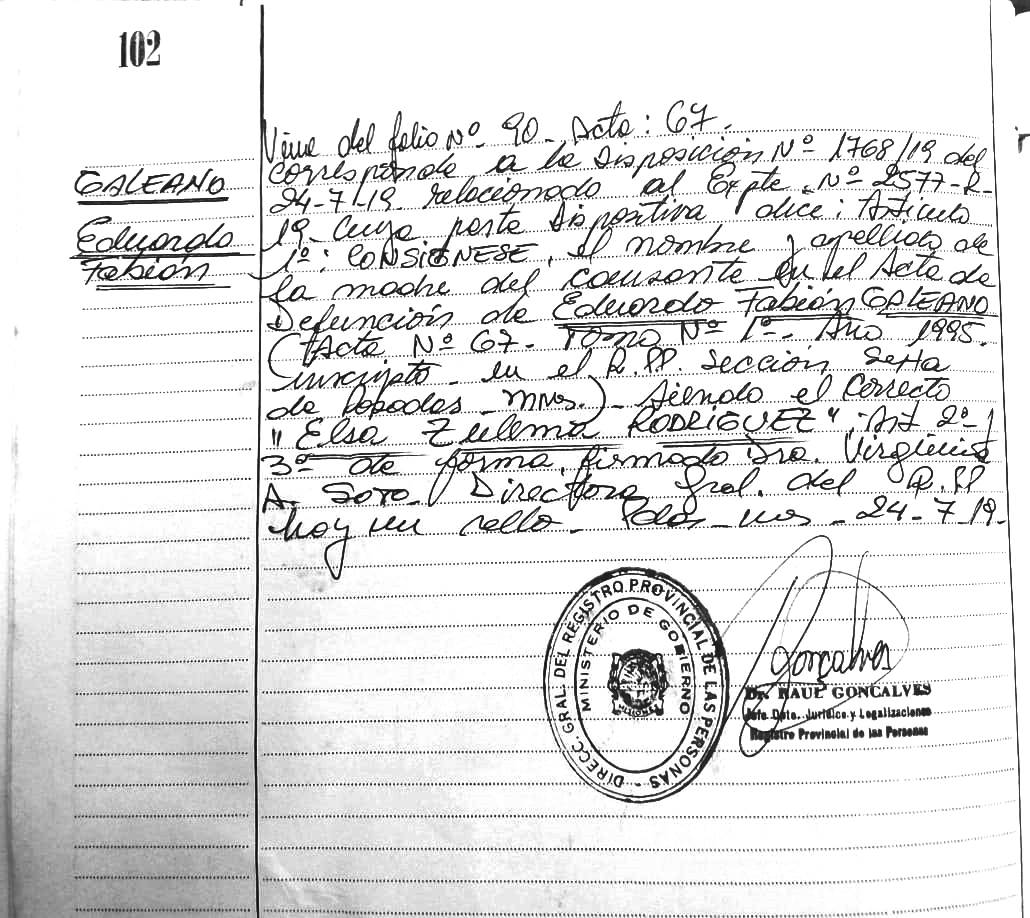 102
GALEANO
Eduardo
Fabián
Viene del folio Nº 90 - Acta: 67.
corresponde a la Disposición Nº 1768/19 del
24-7-19. relacionado al Expte. Nº 2577-R-
19. Cuya parte Dispositiva dice: Artículo
1º: CONSIGNESE, el nombre y apellido de
la madre del causante en el Acta de
Defunción de Eduardo Fabián GALEANO
(Acta Nº 67. Tomo Nº 1º. Año 1995.
inscripto - en el R.PP. Sección Sexta
de Posadas - Mnes.) - siendo el correcto
"Elsa Zulema RODRIGUEZ". Art 2º y
3º de forma, firmado Dra. Virginia
A. Soto. Directora Gral. del R.PP
hoy un sello - Pdas - Mnes - 24-7-19.
DIRECC. GRAL. DEL REGISTRO PROVINCIAL DE LAS PERSONAS -
MINISTERIO DE GOBIERNO
MISIONES
Gonçalves
Dr. RAUL GONCALVES
Jefe Dpto. Jurídico y Legalizaciones
Registro Provincial de las Personas